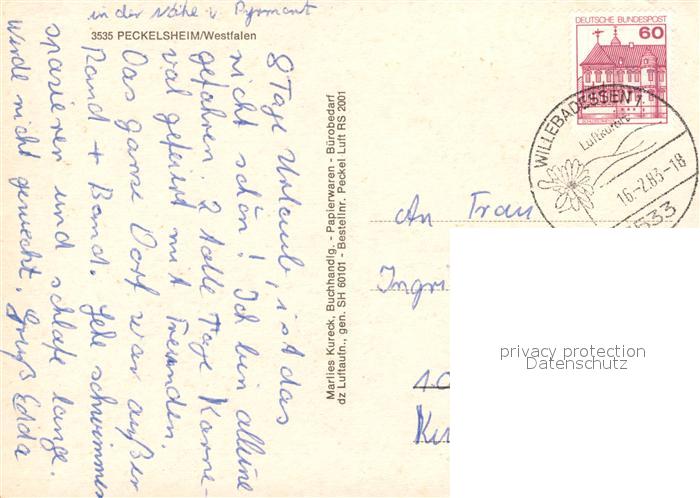 in der Nähe v. Pyrmont
3535 PECKELSHEIM/Westfalen
8 Tage Urlaub, ist das
nicht schön! Ich bin alleine
gefahren. 2 tolle Tage Karne-
val gefeiert mit Freunden.
Das ganze Dorf war außer
Rand + Band. Gehe schwimmen
spazieren und schlafe lange.
Werde nicht geweckt. Gruß Edda
Marlies Kureck, Buchhandlg. - Papierwaren - Bürobedarf
dz Luftaufn., gen. SH 60101 - Bestellnr. Peckel Luft RS 2001
DEUTSCHE BUNDESPOST
60
WILLEBADESSEN 1
Luftkurort
16.-2.83-18
3533
An Frau
Ingri
privacy protection
Datenschutz